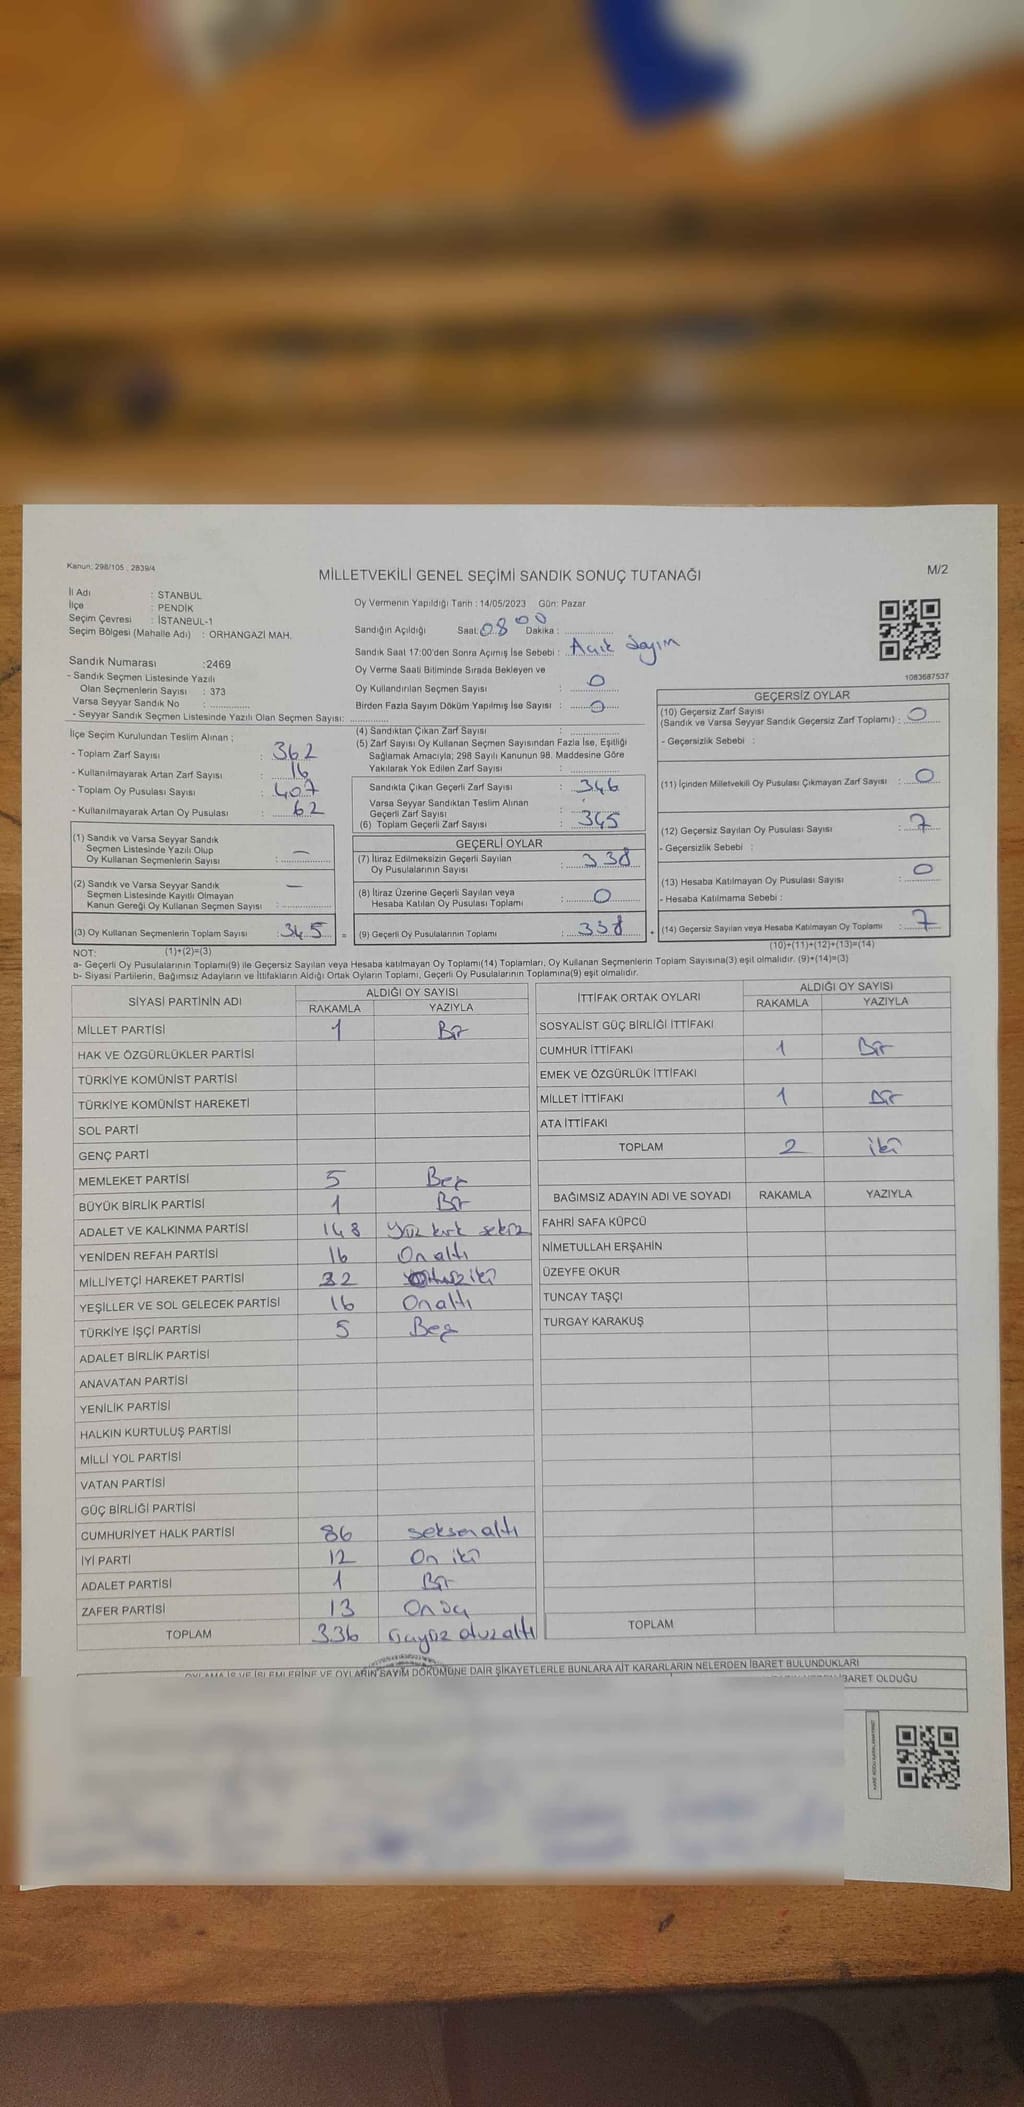 Kanun: 298/105 ; 2839/4
MİLLETVEKİLİ GENEL SEÇİMİ SANDIK SONUÇ TUTANAĞI
M/2
İl Adı : STANBUL
İlçe : PENDİK
Seçim Çevresi : İSTANBUL-1
Seçim Bölgesi (Mahalle Adı) : ORHANGAZİ MAH.
Sandık Numarası :2469
- Sandık Seçmen Listesinde Yazılı
Olan Seçmenlerin Sayısı : 373
Varsa Seyyar Sandık No :
- Seyyar Sandık Seçmen Listesinde Yazılı Olan Seçmen Sayısı:
Oy Vermenin Yapıldığı Tarih : 14/05/2023 Gün: Pazar
Sandığın Açıldığı Saat: 08 Dakika : 00
Sandık Saat 17:00'den Sonra Açımış İse Sebebi : Açık Sayım
Oy Verme Saati Bitiminde Sırada Bekleyen ve
Oy Kullandırılan Seçmen Sayısı : 0
Birden Fazla Sayım Döküm Yapılmış İse Sayısı : 0
1083687537
İlçe Seçim Kurulundan Teslim Alınan ;
- Toplam Zarf Sayısı : 362
- Kullanılmayarak Artan Zarf Sayısı : 16
- Toplam Oy Pusulası Sayısı : 407
- Kullanılmayarak Artan Oy Pusulası : 62
(1) Sandık ve Varsa Seyyar Sandık
Seçmen Listesinde Yazılı Olup
Oy Kullanan Seçmenlerin Sayısı : —
(2) Sandık ve Varsa Seyyar Sandık
Seçmen Listesinde Kayıtlı Olmayan
Kanun Gereği Oy Kullanan Seçmen Sayısı : —
(3) Oy Kullanan Seçmenlerin Toplam Sayısı : 345 =
(4) Sandıktan Çıkan Zarf Sayısı :
(5) Zarf Sayısı Oy Kullanan Seçmen Sayısından Fazla İse, Eşitliği
Sağlamak Amacıyla; 298 Sayılı Kanunun 98. Maddesine Göre
Yakılarak Yok Edilen Zarf Sayısı :
Sandıkta Çıkan Geçerli Zarf Sayısı : 346
Varsa Seyyar Sandıktan Teslim Alınan
Geçerli Zarf Sayısı :
(6) Toplam Geçerli Zarf Sayısı : 345
GEÇERLİ OYLAR
(7) İtiraz Edilmeksizin Geçerli Sayılan
Oy Pusulalarının Sayısı : 338
(8) İtiraz Üzerine Geçerli Sayılan veya
Hesaba Katılan Oy Pusulası Toplamı : 0
(9) Geçerli Oy Pusulalarının Toplamı : 338 +
GEÇERSİZ OYLAR
(10) Geçersiz Zarf Sayısı
(Sandık ve Varsa Seyyar Sandık Geçersiz Zarf Toplamı) : 0
- Geçersizlik Sebebi :
(11) İçinden Milletvekili Oy Pusulası Çıkmayan Zarf Sayısı : 0
(12) Geçersiz Sayılan Oy Pusulası Sayısı : 7
- Geçersizlik Sebebi :
(13) Hesaba Katılmayan Oy Pusulası Sayısı : 0
- Hesaba Katılmama Sebebi :
(14) Geçersiz Sayılan veya Hesaba Katılmayan Oy Toplamı : 7
NOT: (1)+(2)=(3)
(10)+(11)+(12)+(13)=(14)
a- Geçerli Oy Pusulalarının Toplamı(9) ile Geçersiz Sayılan veya Hesaba katılmayan Oy Toplamı(14) Toplamları, Oy Kullanan Seçmenlerin Toplam Sayısına(3) eşit olmalıdır. (9)+(14)=(3)
b- Siyasi Partilerin, Bağımsız Adayların ve İttifakların Aldığı Ortak Oyların Toplamı, Geçerli Oy Pusulalarının Toplamına(9) eşit olmalıdır.
SİYASİ PARTİNİN ADI ALDIĞI OY SAYISI
RAKAMLA YAZIYLA
MİLLET PARTİSİ 1 Bir
HAK VE ÖZGÜRLÜKLER PARTİSİ
TÜRKİYE KOMÜNİST PARTİSİ
TÜRKİYE KOMÜNİST HAREKETİ
SOL PARTİ
GENÇ PARTİ
MEMLEKET PARTİSİ 5 Beş
BÜYÜK BİRLİK PARTİSİ 1 Bir
ADALET VE KALKINMA PARTİSİ 148 Yüz kırk sekiz
YENİDEN REFAH PARTİSİ 16 On altı
MİLLİYETÇİ HAREKET PARTİSİ 32 Otuz iki
YEŞİLLER VE SOL GELECEK PARTİSİ 16 On altı
TÜRKİYE İŞÇİ PARTİSİ 5 Beş
ADALET BİRLİK PARTİSİ
ANAVATAN PARTİSİ
YENİLİK PARTİSİ
HALKIN KURTULUŞ PARTİSİ
MİLLİ YOL PARTİSİ
VATAN PARTİSİ
GÜÇ BİRLİĞİ PARTİSİ
CUMHURİYET HALK PARTİSİ 86 seksen altı
İYİ PARTİ 12 On iki
ADALET PARTİSİ 1 Bir
ZAFER PARTİSİ 13 On üç
TOPLAM 336 Üçyüz otuz altı
İTTİFAK ORTAK OYLARI ALDIĞI OY SAYISI
RAKAMLA YAZIYLA
SOSYALİST GÜÇ BİRLİĞİ İTTİFAKI
CUMHUR İTTİFAKI 1 Bir
EMEK VE ÖZGÜRLÜK İTTİFAKI
MİLLET İTTİFAKI 1 Bir
ATA İTTİFAKI
TOPLAM 2 iki
BAĞIMSIZ ADAYIN ADI VE SOYADI RAKAMLA YAZIYLA
FAHRİ SAFA KÜPCÜ
NİMETULLAH ERŞAHİN
ÜZEYFE OKUR
TUNCAY TAŞÇI
TURGAY KARAKUŞ
TOPLAM
OYLAMA İŞ VE İŞLEMLERİNE VE OYLARIN SAYIM DÖKÜMÜNE DAİR ŞİKAYETLERLE BUNLARA AİT KARARLARIN NELERDEN İBARET BULUNDUKLARI
İBARET OLDUĞU